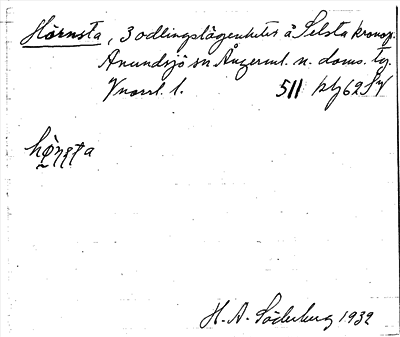 Hörnsta, 3 odlingslägenheter å Selsta kronop.
Anundsjö sn Ångerml. n. doms. tg.
Vnorrl. l. 511 bl 62 SV
hö̀ṇṣta
H. A. Söderberg 1932